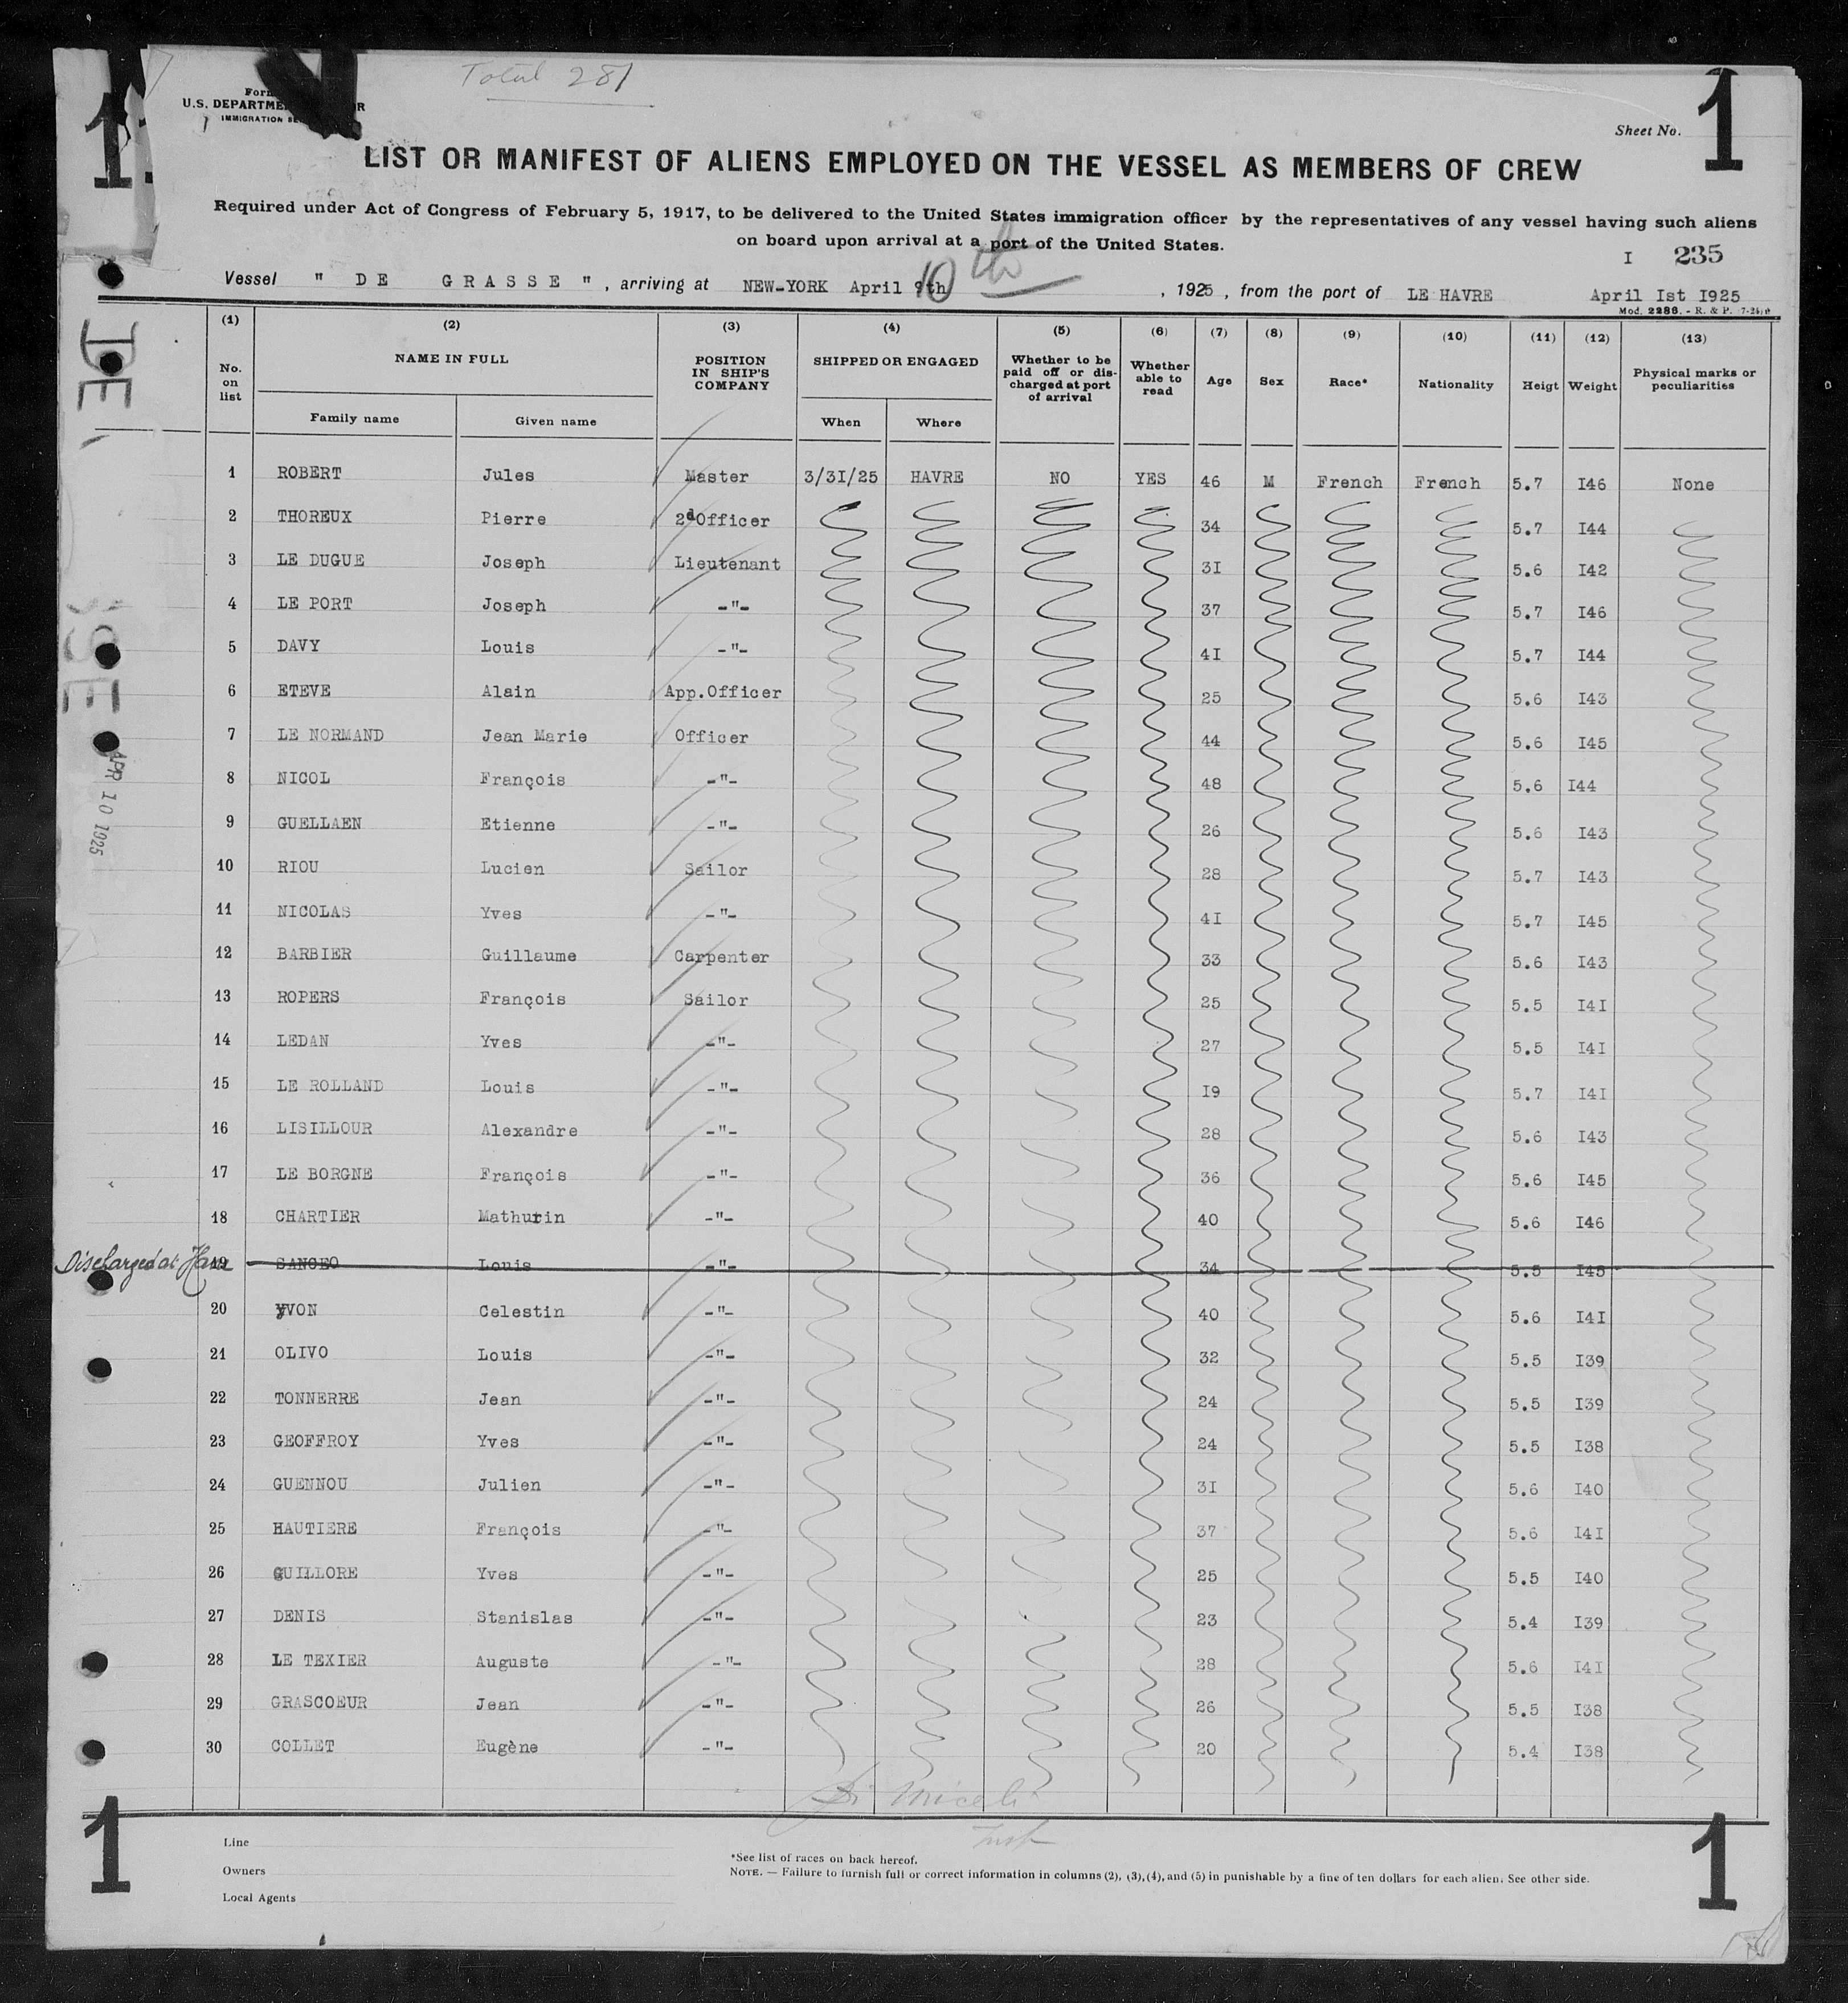 Total 281
Form
U.S. DEPARTME R
IMMIGRATION SE
1
1
Sheet No.
LIST OR MANIFEST OF ALIENS EMPLOYED ON THE VESSEL AS MEMBERS OF CREW
Required under Act of Congress of February 5, 1917, to be delivered to the United States immigration officer by the representatives of any vessel having such aliens
on board upon arrival at a port of the United States.
I 235
Vessel " DE GRASSE ", arriving at NEW-YORK April 9th 10th, 1925, from the port of LE HAVRE April Ist I925
Mod. 2286. - R. & P.
DE
APR 10 1925
(1) (2) (3) (4) (5) (6) (7) (8) (9) (10) (11) (12) (13)
No. on list NAME IN FULL POSITION IN SHIP'S COMPANY SHIPPED OR ENGAGED Whether to be paid off or discharged at port of arrival Whether able to read Age Sex Race* Nationality Heigt Weight Physical marks or peculiarities
Family name Given name When Where
1 ROBERT Jules Master 3/3I/25 HAVRE NO YES 46 M French French 5.7 I46 None
2 THOREUX Pierre 2d Officer 34 5.7 I44
3 LE DUGUE Joseph Lieutenant 3I 5.6 I42
4 LE PORT Joseph -"- 37 5.7 I46
5 DAVY Louis -"- 4I 5.7 I44
6 ETEVE Alain App.Officer 25 5.6 I43
7 LE NORMAND Jean Marie Officer 44 5.6 I45
8 NICOL François -"- 48 5.6 I44
9 GUELLAEN Etienne -"- 26 5.6 I43
10 RIOU Lucien Sailor 28 5.7 I43
11 NICOLAS Yves -"- 4I 5.7 I45
12 BARBIER Guillaume Carpenter 33 5.6 I43
13 ROPERS François Sailor 25 5.5 I4I
14 LEDAN Yves -"- 27 5.5 I4I
15 LE ROLLAND Louis -"- I9 5.7 I4I
16 LISILLOUR Alexandre -"- 28 5.6 I43
17 LE BORGNE François -"- 36 5.6 I45
18 CHARTIER Mathurin -"- 40 5.6 I46
Discharged at Havre 19 SANGEO Louis -"- 34 5.5 I45
20 YVON Celestin -"- 40 5.6 I4I
21 OLIVO Louis -"- 32 5.5 I39
22 TONNERRE Jean -"- 24 5.5 I39
23 GEOFFROY Yves -"- 24 5.5 I38
24 GUENNOU Julien -"- 3I 5.6 I40
25 HAUTIERE François -"- 37 5.6 I4I
26 GUILLORE Yves -"- 25 5.5 I40
27 DENIS Stanislas -"- 23 5.4 I39
28 LE TEXIER Auguste -"- 28 5.6 I4I
29 GRASCOEUR Jean -"- 26 5.5 I38
30 COLLET Eugène -"- 20 5.4 I38
Insp
1
1
Line
Owners
Local Agents
*See list of races on back hereof.
NOTE. — Failure to furnish full or correct information in columns (2), (3), (4), and (5) in punishable by a fine of ten dollars for each alien. See other side.